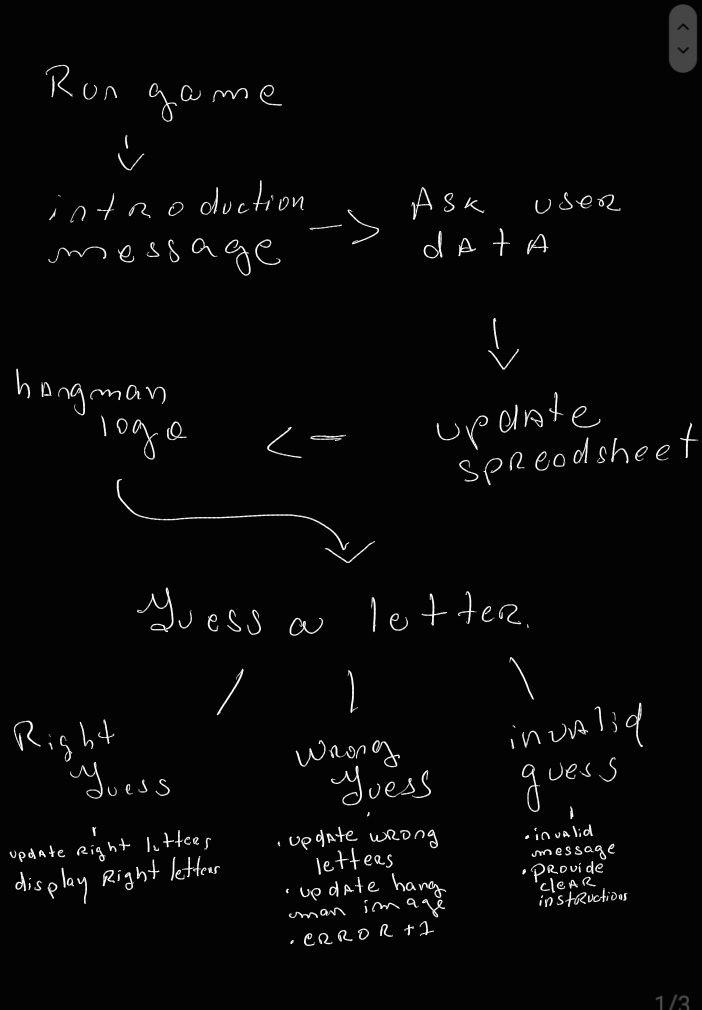 Run game
introduction
message
Ask user
data
update
spreadsheet
hangman
logo
Guess a letter.
Right
Guess
update right letters
display right letters
Wrong
Guess
• update wrong
letters
• update hang
man image
• error +1
invalid
guess
• invalid
message
• provide
clear
instructions
1/3